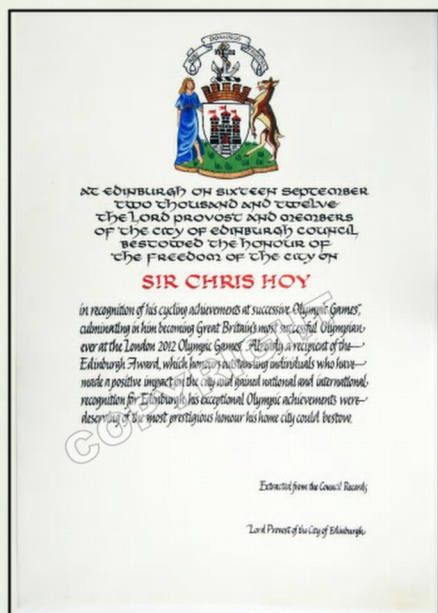 DOMINUS
AT EDINBURGH ON SIXTEEN SEPTEMBER
TWO THOUSAND AND TWELVE
THE LORD PROVOST AND MEMBERS
OF THE CITY OF EDINBURGH COUNCIL
BESTOWED THE HONOUR OF
THE FREEDOM OF THE CITY ON
SIR CHRIS HOY
in recognition of his cycling achievements at successive Olympic Games,
culminating in him becoming Great Britain's most successful Olympian
ever at the London 2012 Olympic Games. Already a recipient of the
Edinburgh Award, which honours outstanding individuals who have
made a positive impact on the city and gained national and international
recognition for Edinburgh, his exceptional Olympic achievements were
deserving of the most prestigious honour his home city could bestow.
COPYRIGHT
Extracted from the Council Records
Lord Provost of the City of Edinburgh